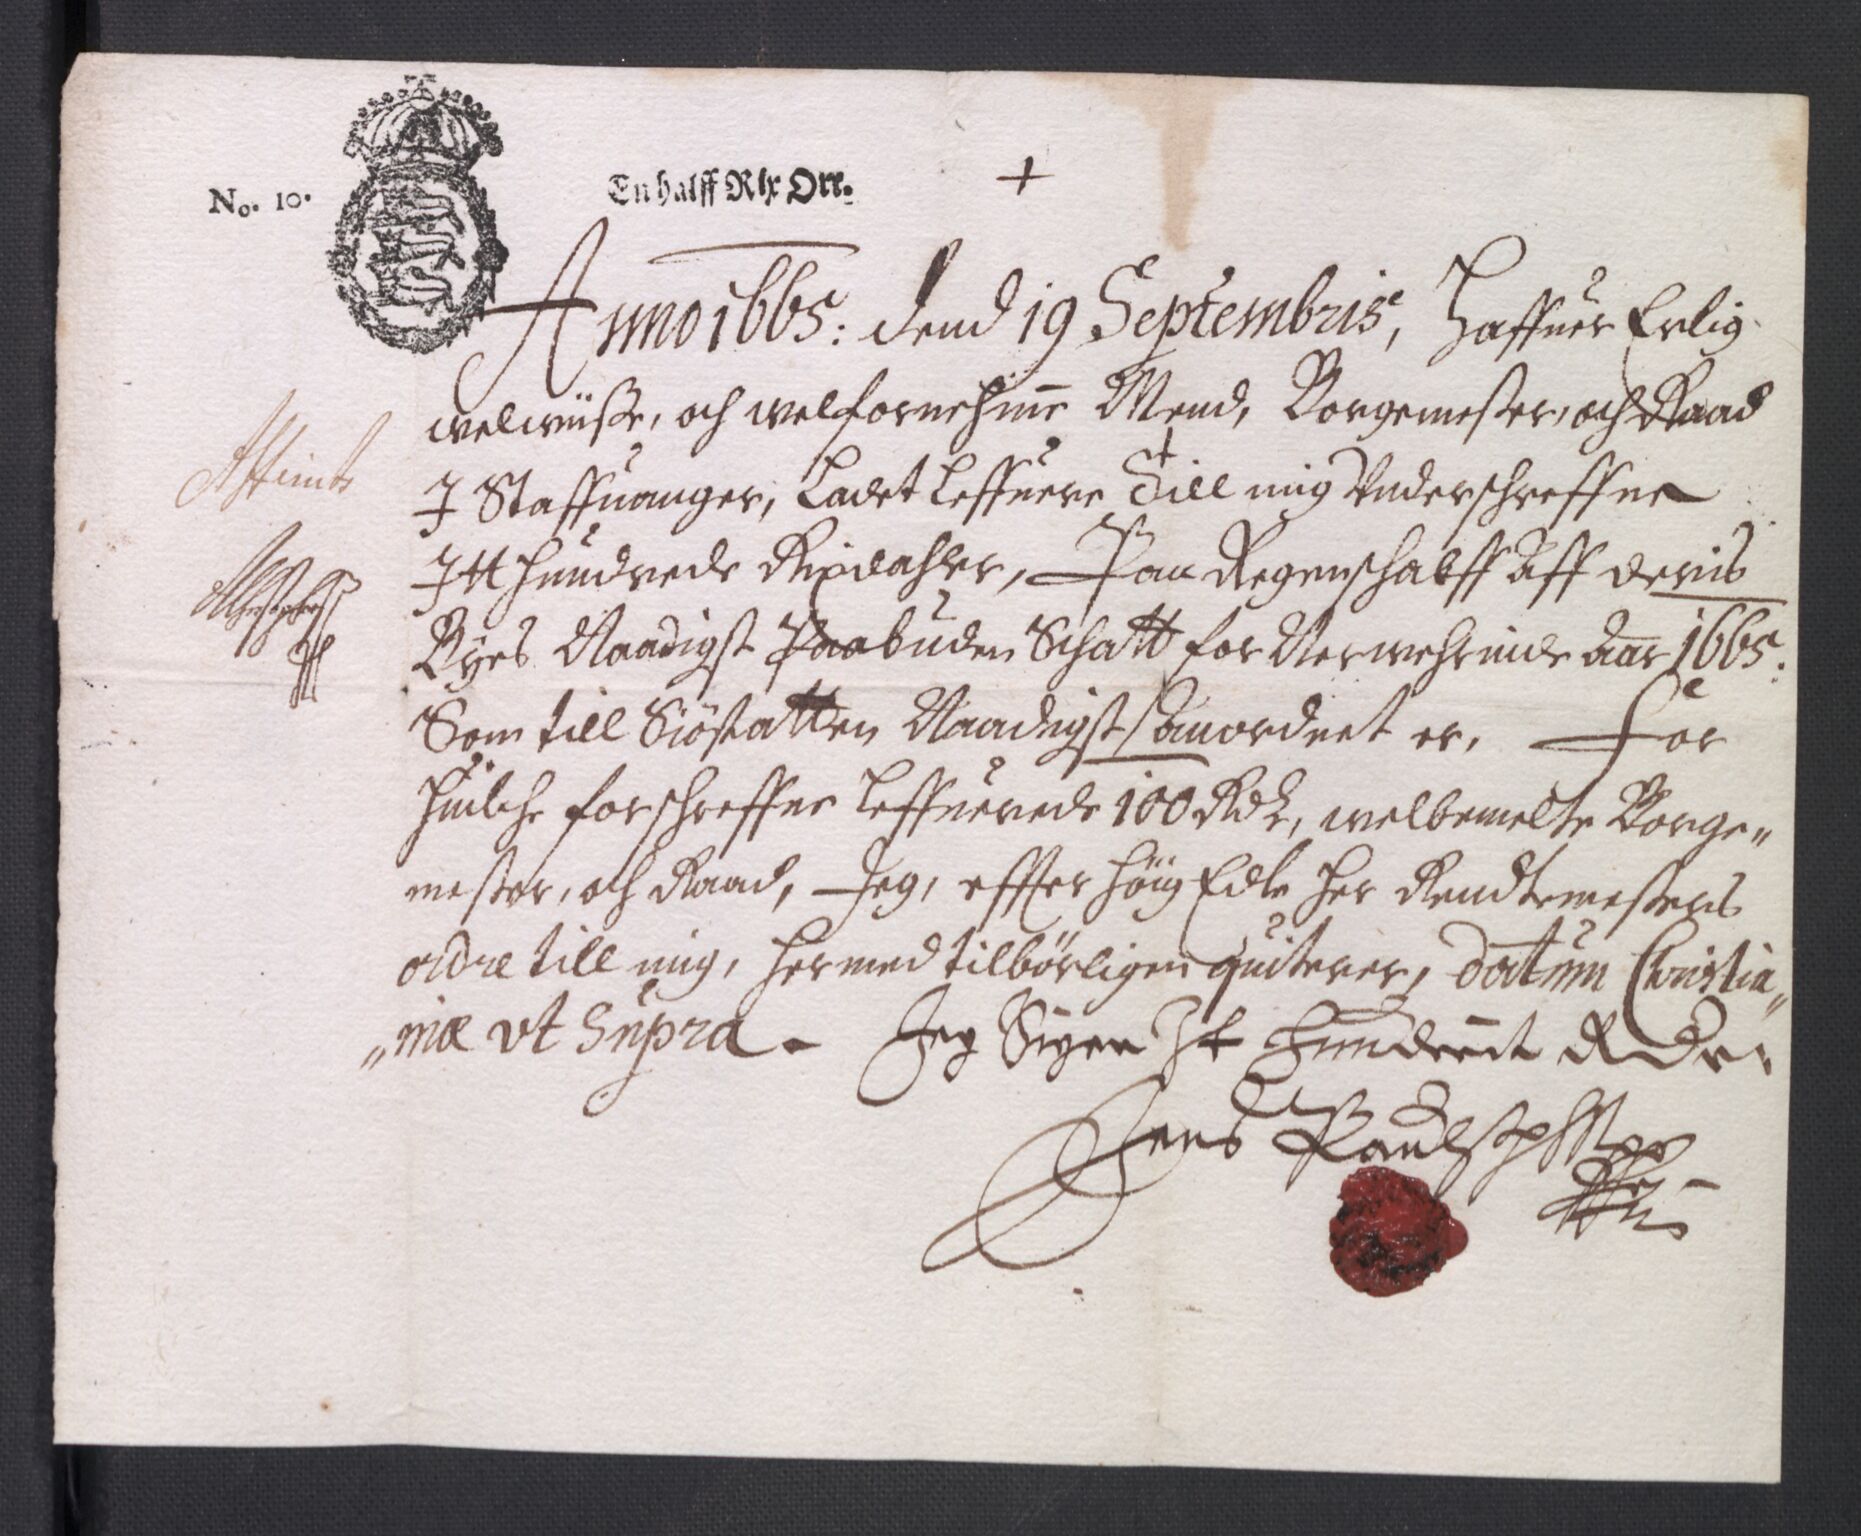 No. 10.
En halff Rix Ort.
Anno 1665: dend 19 Septembris, Haffuer Erlig
welwiisse, och welfornehme Mend, Borgemester, och Raad
I Staffuanger, Ladet Leffuere Till mig Underschreffne
Itt hundrede Rixdahler, Paa Regenschabff Aff deris
Byes Naadigst Paabuden Schatt for Nerwehrinde Aar 1665:
Som till Siöstatten Naadigst anordnet er, For
huilche forschreffne Leffuerede 100 Rdr, welbemelte Borge„
mester, och Raad, Jeg, effter höig Edle her Rendtemesters
ordre till mig, hermed tilbörligen quiterer, Datum Christia„
„niæ ut Supra. Jeg Siger It Hundrect R Dr.
Jens Paulsen